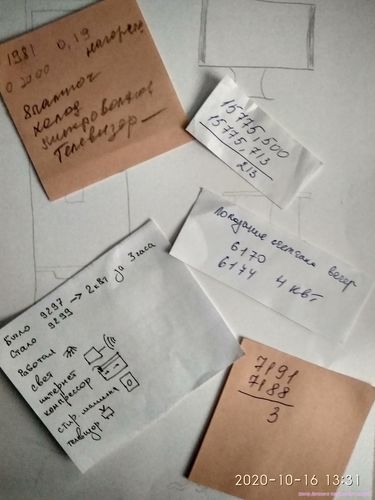 1981 0,19 нагорело
0 2000
8 лампоч
холод
микроволнов
Телевизор
15775,500
15775,713
213
Показание счетчика вечер
6170
6174 4 кВт
Было 9297 → 2 кВт за 3 часа
Стало 9299
Работали
свет
интернет
компрессор
стир. машина
телевизор
7191
7188
3
2020-10-16 13:31